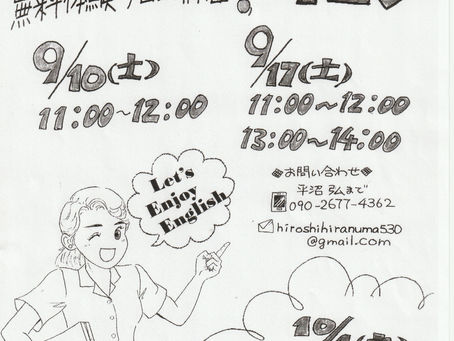 無料体験
9/10(土)
11:00~12:00
9/17(土)
11:00~12:00
13:00~14:00
Let's
Enjoy
English
◆お問い合わせ◆
平沼 弘まで
090-2677-4362
hiroshihiranuma530
@gmail.com